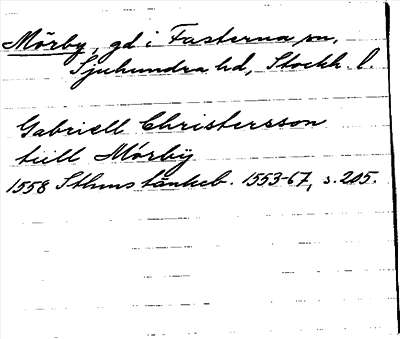 Mörby, gd i Fasterna sn,
Sjuhundra hd, Stockh. l.
Gabriell Christersson
tiill Mörbÿ
1558 Sthms tänkeb. 1553-67, s. 205.